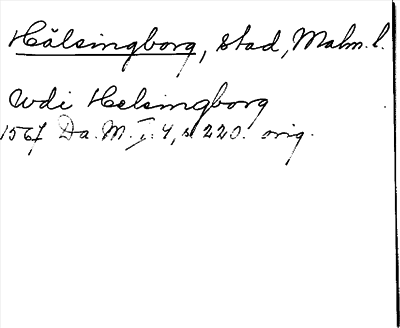 Hälsingborg, stad, Malm. l.
Wdi Helsingborg
1567 Da. M. I. 4, s 220. orig.